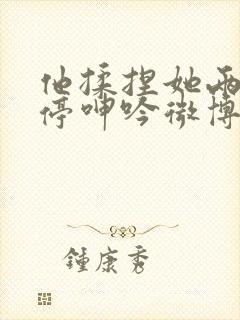 他揉捏她两
停呻吟微博
鍾康秀